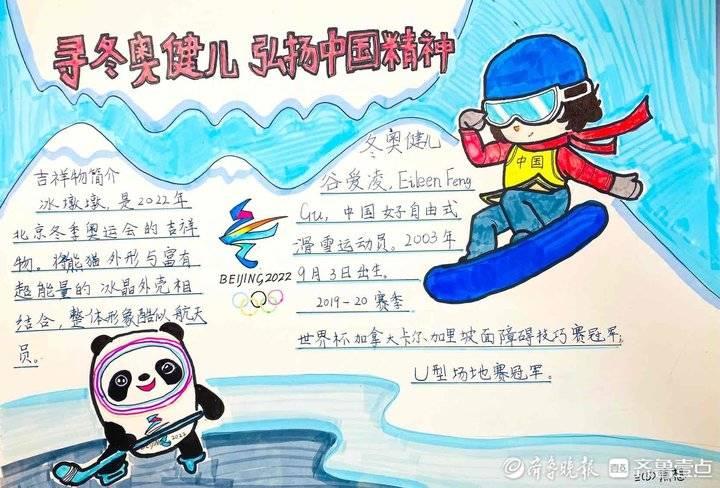 寻冬奥健儿 弘扬中国精神
吉祥物简介
冰墩墩，是2022年
北京冬季奥运会的吉祥
物。将熊猫外形与富有
超能量的冰晶外壳相
结合，整体形象酷似航天
员。
BEIJING2022
冬奥健儿
谷爱凌，Eileen Feng
Gu，中国女子自由式
滑雪运动员。2003年
9月3日出生。
2019-20赛季
世界杯加拿大卡尔加里坡面障碍技巧赛冠军，
U型场地赛冠军。
中国
BEIJING 2022
齐鲁晚报 齐鲁壹点